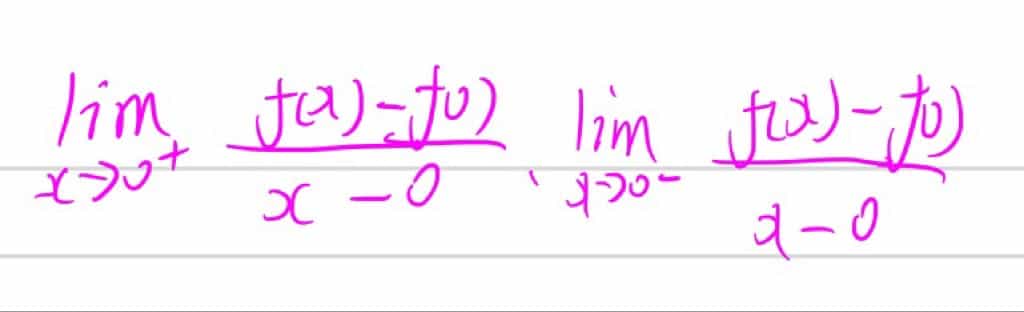 lim x→0+ f(x)-f(0) / x-0 、 lim x→0- f(x)-f(0) / x-0